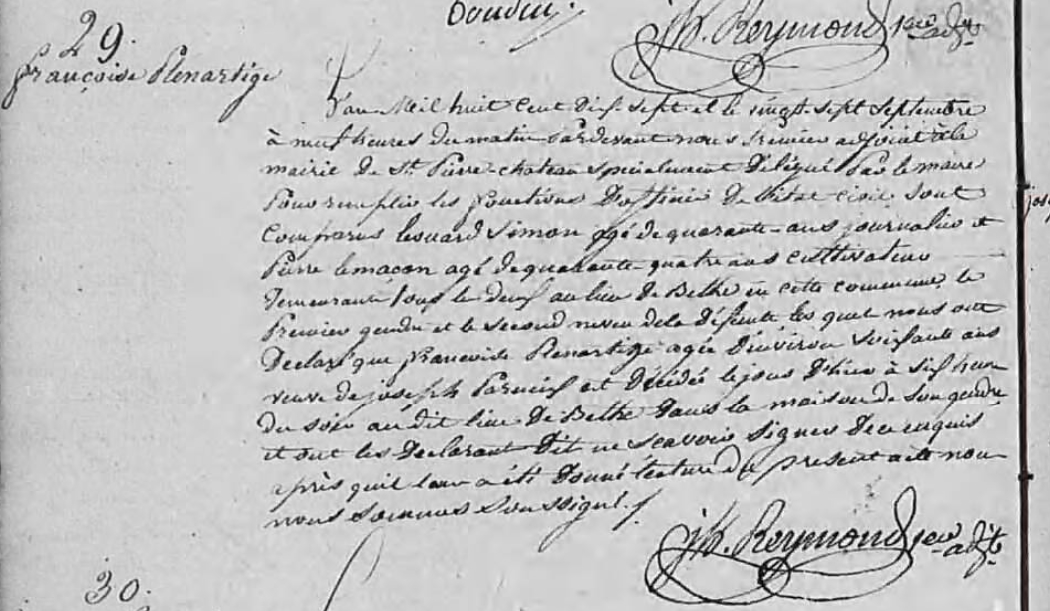 Doudin.
jh. Reymond 1er adjt
29.
françoise Plenartige
L'an Mil huit Cent dix sept et le vingt sept Septembre
à neuf heures du matin Pardevant nous Premier adjoint à la
mairie de St. Pierre-chateau specialement Délégué Par le maire
Pour remplir les fonctions D'officier De l'état civil sont
Comparus Léonard Simon agé de quarante ans journalier et
Pierre lemaçon agé de quarante quatre ans cultivateur
Demeurant tous le deux au lieu de Belhe en cette commune le
Premier gendre et le second neveu dela Défeunte les quel nous ont
Déclaré que françoise Plenartige agée D'environ Soixante ans
veuve de joseph est Décédé lejour D'hier à six heure
du soir au dit lieu De Belhe Dans la maison de Son gendre
et ont les Declarant Dit ne Scavoir Signer De ce enquis
après quil leur a été Donné lecture du present acte nou
nous Sommes Soussigné.
jh. Reymond 1er adjt
30.